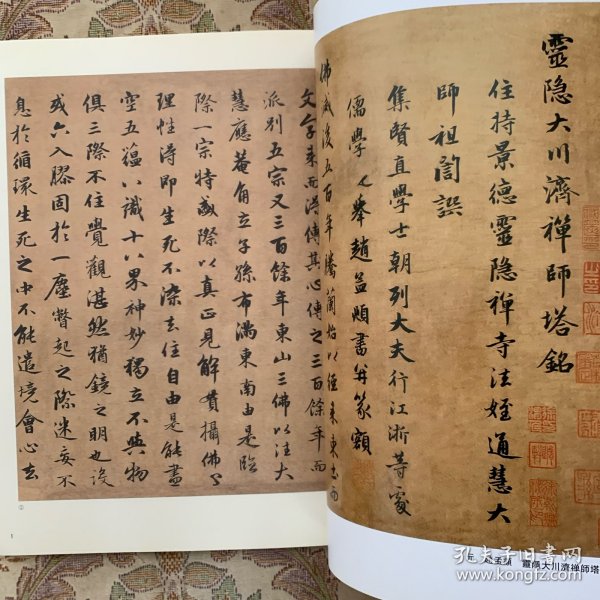 靈隐大川濟禪師塔銘
住持景德靈隐禪寺法姪通慧大
師祖誾譔
集賢直學士朝列大夫行江浙等處
儒學提舉趙孟頫書并篆額
佛滅後五百年騰蘭始以經来東土
文字来而淂傳其心傳之三百餘年而
派别五宗又三百餘年東山三佛以法大
慧應菴角立子孫布滿東南由是臨
際一宗特盛際以真正見解貫攝佛
理性淂即生死不染去住自由是能盡
空五蕴八識十八界神妙獨立不與物
俱三際不住覺觀湛然猶鏡之明也沒
或六入膠固於一塵瞥起之際迷妄不
息於循環生死之中不能遣境會心去
②
1
元 趙孟頫 靈隱大川濟禅師塔
孔夫子旧书网
www.kongfz.com